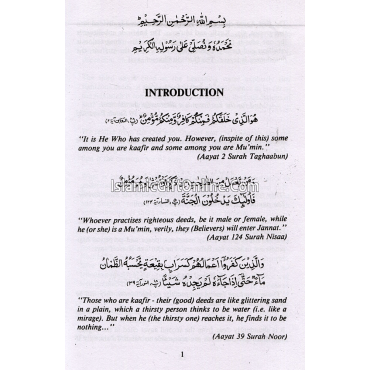 بِسْمِ اللهِ الرَّحْمٰنِ الرَّحِيْمِ
نَحْمَدُهٗ وَنُصَلِّيْ عَلٰى رَسُوْلِهِ الْكَرِيْمِ
INTRODUCTION
هُوَ الَّذِيْ خَلَقَكُمْ فَمِنْكُمْ كَافِرٌ وَّمِنْكُمْ مُّؤْمِنٌ
"It is He Who has created you. However, (inspite of this) some
among you are kaafir and some among you are Mu'min. "
(Aayat 2 Surah Taghaabun)
وَمَنْ يَّعْمَلْ مِنَ الصّٰلِحٰتِ مِنْ ذَكَرٍ اَوْ اُنْثٰى وَهُوَ مُؤْمِنٌ
فَاُولٰٓئِكَ يَدْخُلُوْنَ الْجَنَّةَ
"Whoever practises righteous deeds, be it male or female, while
he (or she) is a Mu'min, verily, they (Believers) will enter Jannat."
(Aayat 124 Surah Nisaa)
وَالَّذِيْنَ كَفَرُوْا اَعْمَالُهُمْ كَسَرَابٍ بِقِيْعَةٍ يَّحْسَبُهُ الظَّمْاٰنُ
مَآءً حَتّٰى اِذَا جَآءَهٗ لَمْ يَجِدْهُ شَيْئًا
"Those who are kaafir - their (good) deeds are like glittering sand
in a plain, which a thirsty person thinks to be water (i.e. like a
mirage). But when he (the thirsty one) reaches it, he finds it to be
nothing..."
(Aayat 39 Surah Noor)
1